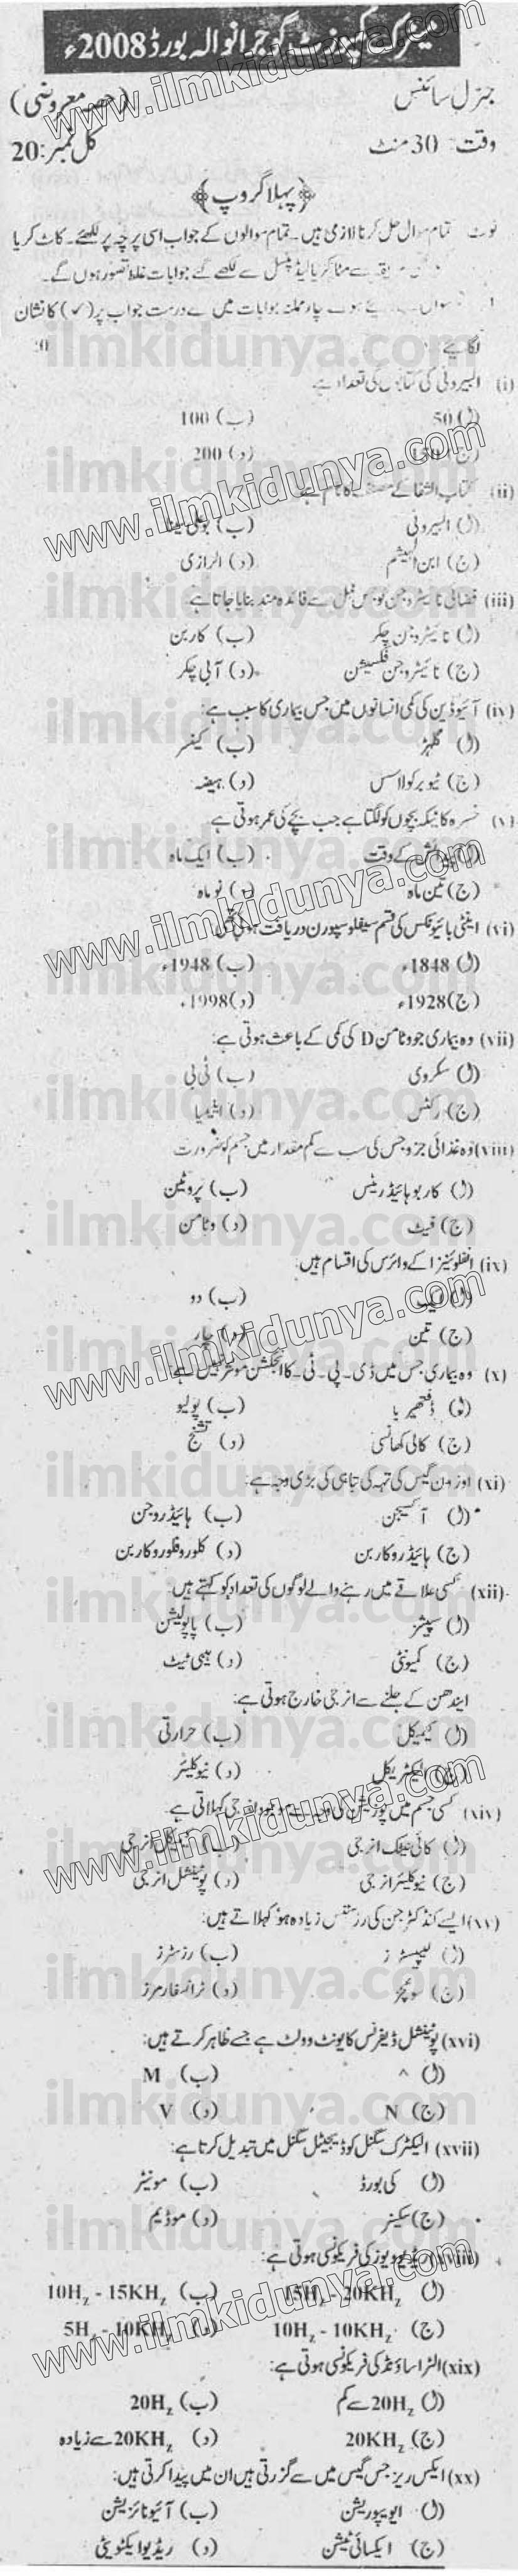 گوجرانوالہ بورڈ 2008ء
جنرل سائنس (حصہ معروضی)
وقت 30 منٹ کل نمبر: 20
﴿پہلا گروپ﴾
نوٹ تمام سوال حل کرنا لازمی ہیں۔ تمام سوالوں کے جواب اسی پرچہ پر لکھئے۔ کاٹ کر یا
سے مٹا کر یا لیڈ پنسل سے لکھے گئے جوابات غلط تصور ہوں گے۔
چار ممکنہ جوابات میں سے درست جواب پر (✓) کا نشان
لگائیے
(i) البیرونی کی کتابوں کی تعداد ہے
(ل) 50 (ب) 100
(ج) 150 (د) 200
(ii) کتاب الشفا کے مصنف کا نام ہے
(ل) البیرونی (ب) بوعلی سینا
(ج) ابن الہیشم (د) الرازی
(iii) فضائی نائیٹروجن کو جس عمل سے فائدہ مند بنایا جاتا ہے
(ل) نائیٹروجن چکر (ب) کاربن
(ج) نائیٹروجن فکسیشن (د) آبی چکر
(iv) آئیوڈین کی کمی انسانوں میں جس بیماری کا سبب ہے:
(ل) گلہڑ (ب) کینسر
(ج) ٹیوبرکولاسس (د) ہیضہ
(v) خسرہ کا ٹیکہ بچوں کو لگتا ہے جب بچے کی عمر ہوتی ہے
(ل) پیدائش کے وقت (ب) ایک ماہ
(ج) تین ماہ (د) نو ماہ
(vi) اینٹی بائیوٹکس کی قسم سیفلوسپورن دریافت ہوئی تھی
(ل) 1848ء (ب) 1948ء
(ج) 1928ء (د) 1998ء
(vii) وہ بیماری جو وٹامن D کی کمی کے باعث ہوتی ہے:
(ل) سکروی (ب) ٹی بی
(ج) رکٹس (د) اینیمیا
(viii) وہ غذائی جزو جس کی سب سے کم مقدار میں جسم کو ضرورت
(ل) کاربوہائیڈریٹس (ب) پروٹین
(ج) فیٹ (د) وٹامن
(ix) انفلوئنزا کے وائرس کی اقسام ہیں:
(ل) ایک (ب) دو
(ج) تین (د) چار
(x) وہ بیماری جس میں ڈی۔ پی۔ ٹی۔ کا انجکشن موثر نہیں ہے:
(ل) ڈفتھیریا (ب) پولیو
(ج) کالی کھانسی (د) تشنج
(xi) اوزون گیس کی تہہ کی تباہی کی بڑی وجہ ہے:
(ل) آکسیجن (ب) ہائیڈروجن
(ج) ہائیڈروکاربن (د) کلوروفلوروکاربن
(xii) کسی علاقے میں رہنے والے لوگوں کی تعداد کو کہتے ہیں:
(ل) سپیشز (ب) پاپولیشن
(ج) کمیونٹی (د) ہیبی ٹیٹ
ایندھن کے جلنے سے انرجی خارج ہوتی ہے:
(ل) کیمیکل (ب) حرارتی
(ج) الیکٹریکل (د) نیوکلیئر
(xiv) کسی جسم میں پوزیشن کی وجہ سے موجود انرجی کہلاتی ہے
(ل) کائی نیٹک انرجی (ب) کیمیکل انرجی
(ج) نیوکلیئر انرجی (د) پوٹینشل انرجی
(xv) ایسے کنڈکٹر جن کی رزسٹنس زیادہ ہو کہلاتے ہیں:
(ل) کپیسٹرز (ب) رزسٹرز
(ج) سوئچز (د) ٹرانسفارمرز
(xvi) پوٹینشل ڈیفرنس کا یونٹ وولٹ ہے جسے ظاہر کرتے ہیں:
(ل) ^ (ب) M
(ج) N (د) V
(xvii) الیکٹرک سگنل کو ڈیجیٹل سگنل میں تبدیل کرتا ہے:
(ل) کی بورڈ (ب) مونیٹر
(ج) سکینر (د) موڈیم
(xviii) ریڈیو ویوز کی فریکونسی ہوتی ہے:
(ل) 15Hz - 20KHz (ب) 10Hz - 15KHz
(ج) 10Hz - 10KHz (د) 5Hz - 10KHz
(xix) الٹرا ساؤنڈ کی فریکونسی ہوتی ہے:
(ل) 20Hz سے کم (ب) 20Hz
(ج) 20KHz (د) 20KHz سے زیادہ
(xx) ایکس ریز جس گیس میں سے گزرتی ہیں ان میں پیدا کرتی ہیں:
(ل) ایوپوریشن (ب) آئیونائزیشن
(ج) ایکسائی ٹیشن (د) ریڈیو ایکٹویٹی
www.ilmkidunya.com
ilmkidunya.com